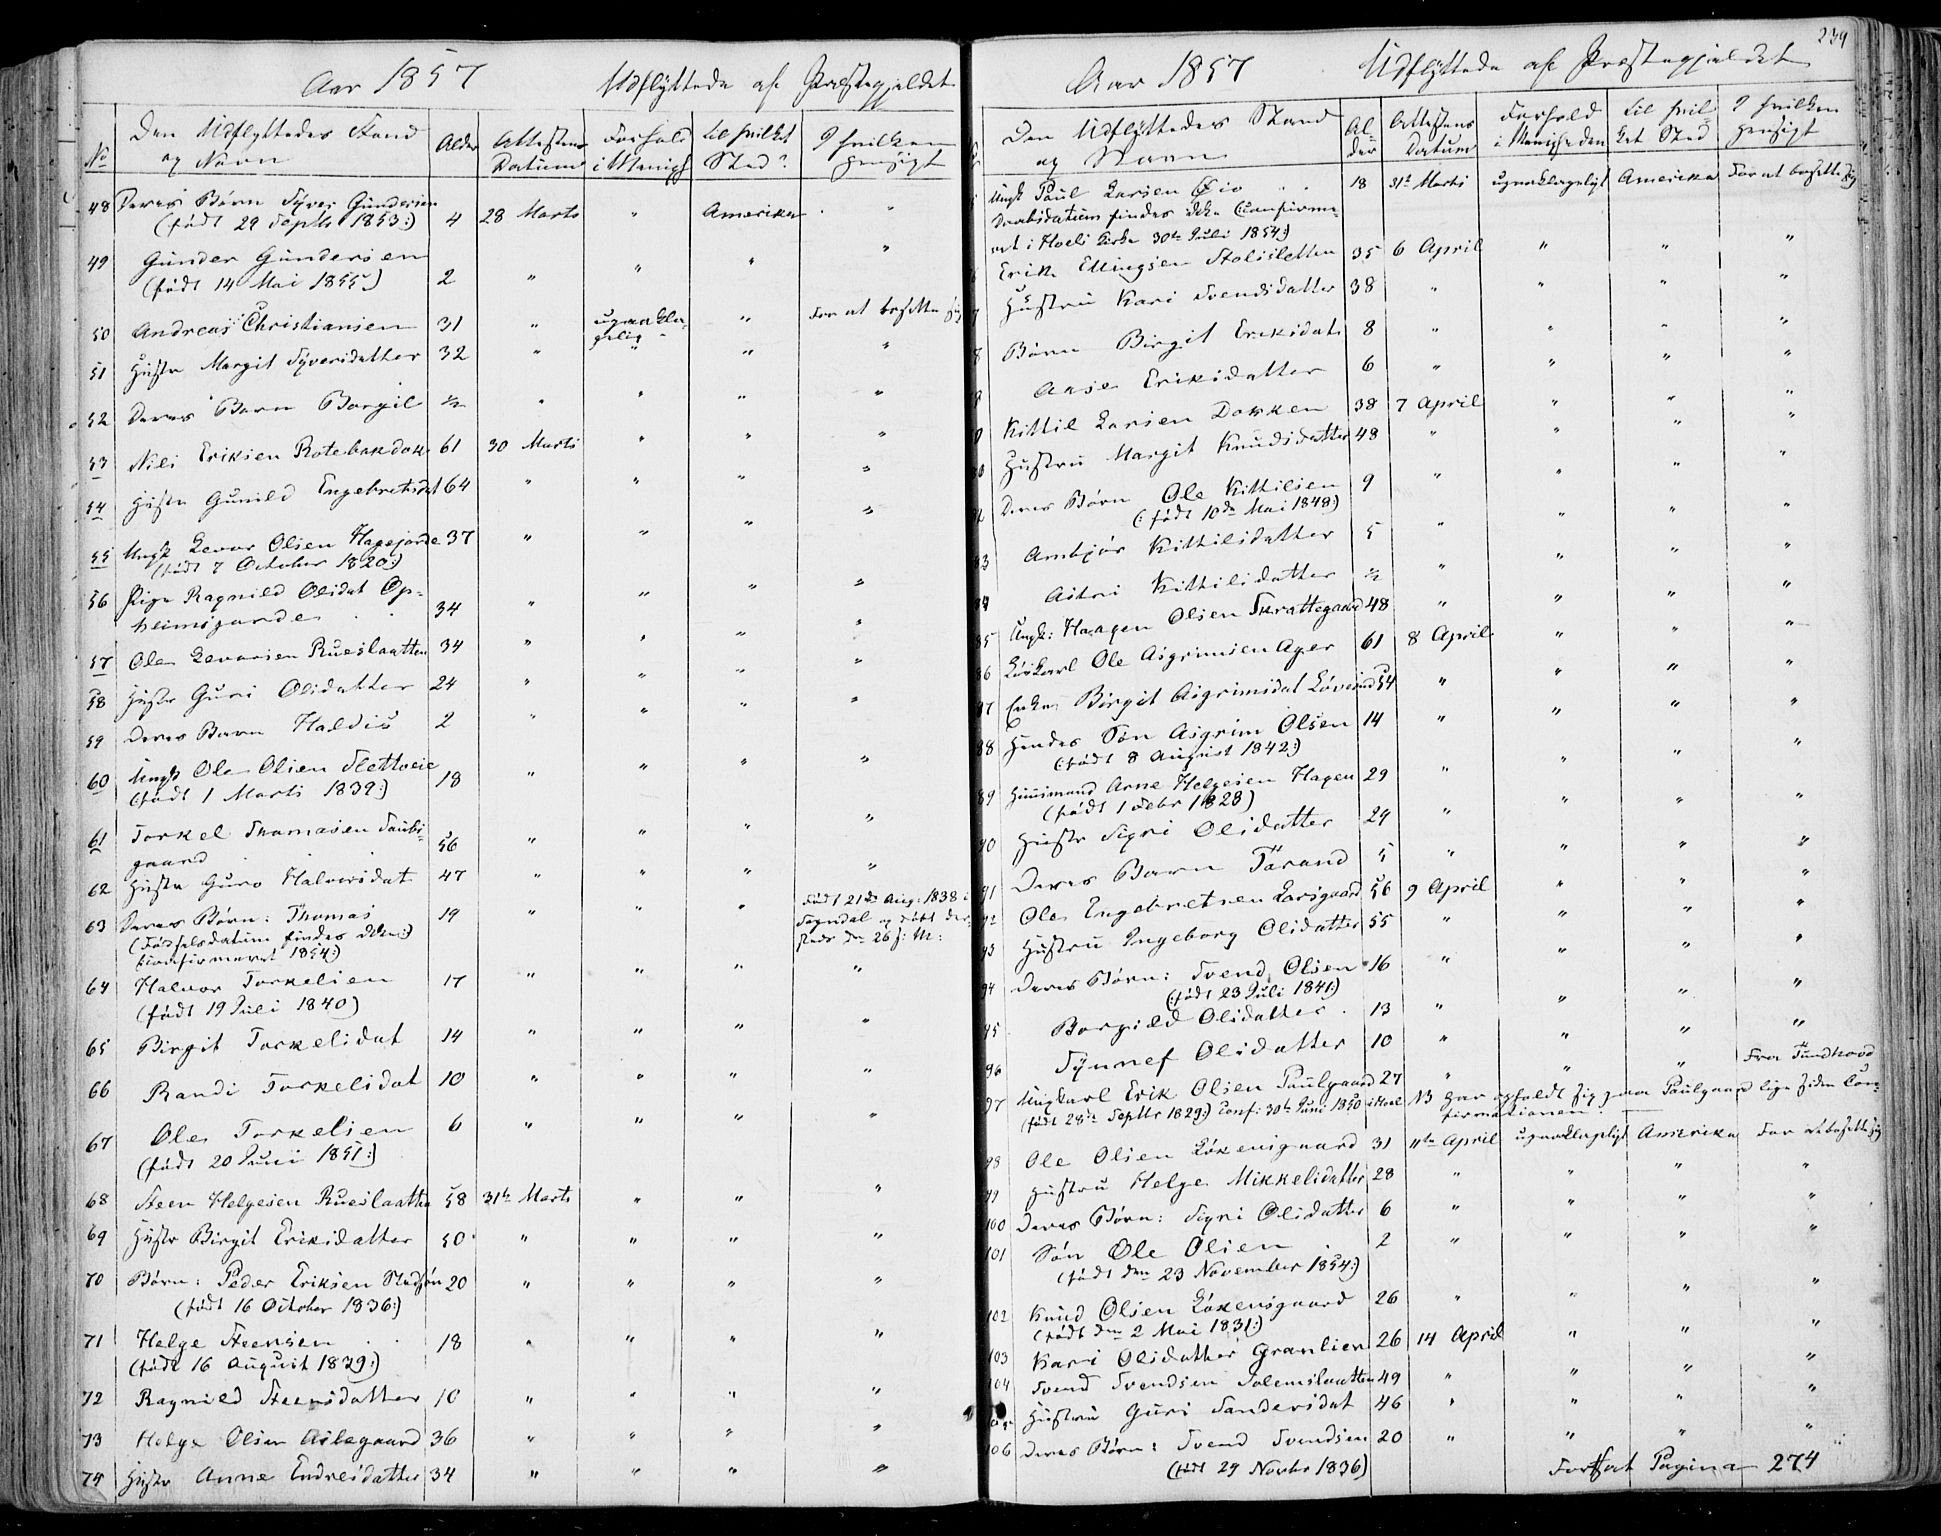 Aar 1857 Udflyttede af Præstegjeldet
No Den Udflyttedes Stand og Navn Alder Attestens Datum Forhold i Menigh til hvilket Sted? I hvilken Hensigt
48 Deres Børn Syver Gundersen
(født 29 Septbr 1853:) 4 28 Marts " Amerika "
49 Gunder Gundersen " 
(født 14 Mai 1855) 2 " " "
50 Andreas Christiansen 31 " upaaklagelig " For at bosætte sig
51 Hustr Margit Syversdatter 32 " " " "
52 Deres Barn Bergit ½ " " " "
53 Nils Eriksen Rotebakdok 61 30 Marts " " "
54 Hustr Gunild Engebretsdat 64 " " " "
55 Ungk Levor Olsen Hagejorde 37 " " " "
(født 7 October 1820:)
56 Pige Ragnild Olsdat Op-
heimsjorde 34 " " " "
57 Ole Levorsen Rueslaatten 34 " " " "
58 Hustr Guri Olsdatter 24 " " " "
59 Deres Barn Haldis 2 " " " "
60 Ungk Ole Olsen Slettveie
(født 1 Marts 1839:) 18 " " " "
61 Torkel Thomasen
gaard 56 " " " "
62 Hustr Guro Halvorsdat 47 " " " "
63 Deres Børn: Thomas 19 " " " Født 21de Aug: 1838 i
(Fødselsdatum findes ikke:) Sogndal og døbt der-
Confirmeret 1854:) steds den 26 s: M:
64 Halvor Torkelsen 17 " " " "
(født 19 Juli 1840)
65 Birgit Torkelsdat 14 " " " "
66 Randi Torkelsdat 10 " " " "
67 Ole Torkelsen 6 " " " "
(født 20 Juni 1851:)
68 Steen Helgesen Rueslaatten 58 31te Marts " " "
69 Hustr Birgit Eriksdatter 50 " " " "
70 Børn: Peder Eriksen Stedsøn 20 " " " "
(født 16 October 1836:)
71 Helge Steensen 18 " " " "
(født 16 August 1839:)
72 Ragnild Steensdatter 10 " " " "
73 Helge Olsen Aslegaard 36 " " " "
74 Hustr Anne Endresdatter 34 " " " "
239
Aar 1857 Udflyttede af Præstegjeldet
Den Udflyttedes Stand og Navn Alder Attestens Datum Forhold i Menigheden til hvilket Sted I hvilken Hensigt
Ungk Paul Larsen Øio 18 31te Marts upaaklageligt Amerika For at bosætte sig
Daabsdatum findes ikke (Confirme-
ret i Hoels Kirke 30te Juli 1854:)
Erik Ellingsen Stolsletten 35 6 April " " "
Hustru Kari Svendsdatter 38 " " " "
8 Børn Birgit Eriksdat 8 " " " "
9 Aase Eriksdatter 6 " " " "
Kittil Larsen Dokken 38 7 April " " "
Hustru Margit Knudsdatter 48 " " " "
Deres Børn Ole Kittilsen 9 " " " "
(: født 10de Mai 1848)
83 Ambjør Kittilsdatter 5 " " " "
84 Astri Kittilsdatter ½ " " " "
85 Ungk: Haagen Olsen Skrattegaard 48 " " " "
86 Løskarl Ole Asgrimsen Ager 61 8 April " " "
87 Enke Birgit Asgrimsdat 54 " " " "
88 Hendes Søn Asgrim Olsen 14 " " " "
(:født 8 August 1842:)
89 Huusmand Arne Helgesen Hagen 29 " " " "
(født 1 Febr 1828)
90 Hustr Sigri Olsdatter 29 " " " "
91 Deres Barn Tarand 5 " " " "
92 Ole Engebretsen Larsgaard 56 9 April " " "
93 Hustru Ingeborg Olsdatter 55 " " " "
94 Deres Børn: Svend Olsen 16 " " " "
(:født 23 Juli 1841:)
95 Bergild Olsdatter 13 " " " "
96 Synnef Olsdatter 10 " " " "
97 Ungkarl Erik Olsen Paulgaard 27 " " " Fra Tundhovd
(født 28de Septbr 1829:) Conf: 30te Juni 1850 i Hoel NB har opholdt sig paa Paulgaard lige siden Con-
firmationen.
98 Ole Olsen Løkensgaard 31 11te April upaaklageligt Amerika For at bosætte sig
99 Hustru Helge Mikkelsdatter 28 " " " "
100 Deres Børn: Sigri Olsdatter 6 " " " "
101 Søn Ole Olsen 2 " " " "
(født den 23 November 1854:)
102 Knud Olsen Løkensgaard 26 " " " "
(født den 2 Mai 1831:)
103 Kari Olsdatter Granlien 26 14 April " " "
104 Svend Svendsen Solemslaatten 49 " " " "
Hustru Guri Sandersdat 46 " " " "
106 Deres Børn: Svend Svendsen 20 " " " "
(født 29 Novbr 1836)
Fortsat Pagina 274